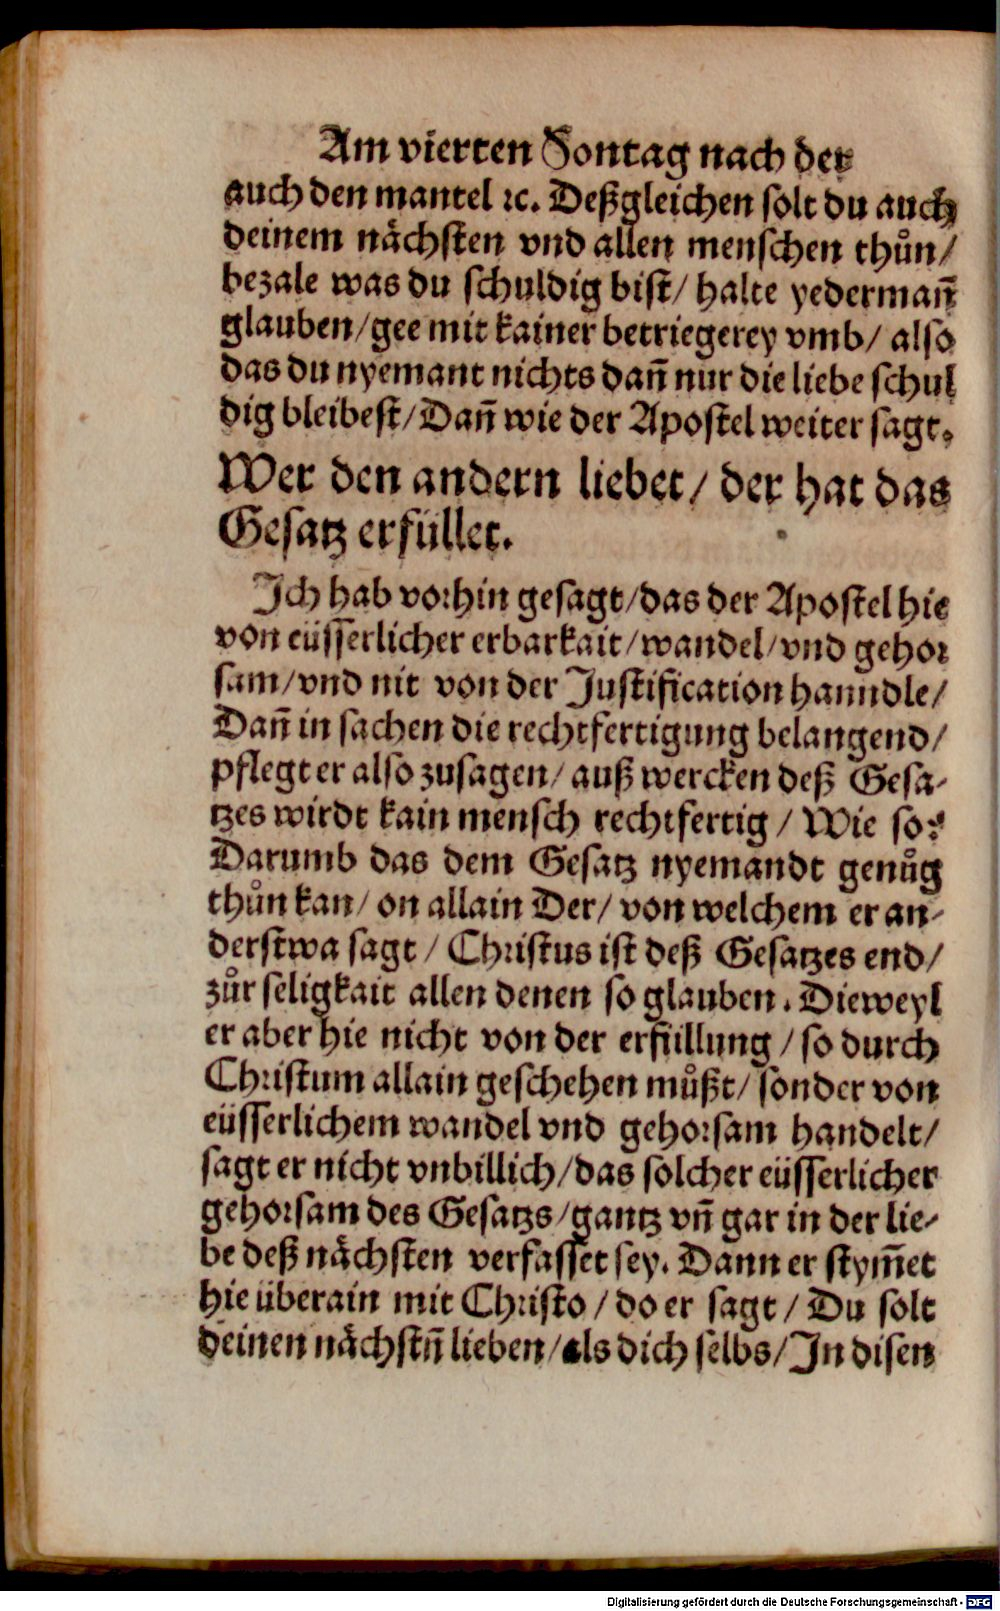 Am vierten Sontag nach der
auch den mantel ꝛc. Deßgleichen solt du auch
deinem nächsten vnd allen menschen thůn/
bezale was du schuldig bist/ halte yederman̄
glauben/gee mit kainer betriegerey vmb/ also
das du nyemant nichts dan̄ nur die liebe schul
dig bleibest/Dan̄ wie der Apostel weiter sagt.
Wer den andern liebet/ der hat das
Gesatz erfüllet.
Ich hab vorhin gesagt/das der Apostel hie
von eüsserlicher erbarkait/wandel/vnd gehor
sam/vnd nit von der Justification hanndle/
Dan̄ in sachen die rechtfertigung belangend/
pflegt er also zusagen/ auß wercken deß Gesa-
tzes wirdt kain mensch rechtfertig/ Wie so?
Darumb das dem Gesatz nyemandt genůg
thůn kan/ on allain Der/ von welchem er an-
derstwa sagt/ Christus ist deß Gesatzes end/
zůr seligkait allen denen so glauben. Dieweyl
er aber hie nicht von der erfüllung/ so durch
Christum allain geschehen můßt/ sonder von
eüsserlichem wandel vnd gehorsam handelt/
sagt er nicht vnbillich/das solcher eüsserlicher
gehorsam des Gesatzs/gantz vn̄ gar in der lie-
be deß nächsten verfasset sey. Dann er stym̄et
hie überain mit Christo/ do er sagt/ Du solt
deinen nächstn̄ lieben/als dich selbs/ In disen
Digitalisierung gefördert durch die Deutsche Forschungsgemeinschaft - DFG